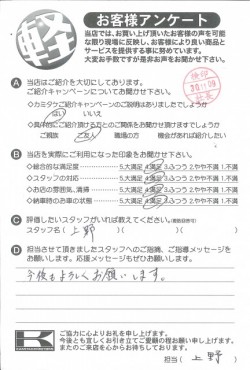 軽
お客様アンケート
当店では、お買い上げ頂いたお客様の声を可能
な限り現場に反映し、お客様により良い商品と
サービスを提供する事に努めています。
大変お手数ですが是非お声をお聞かせ下さい。
A 当店はご紹介を大切にしております。
ご紹介キャンペーンについてお聞かせ下さい。
◇カミタケご紹介キャンペーンのご説明はありましたでしょうか
はい いいえ
◇具体的にご紹介頂ける方とのご関係をお聞かせ頂けますでしょうか
ご親族 ご友人 職場の方 機会があれば紹介したい
B 当店を実際にご利用になった印象をお聞かせ下さい。
◇総合的な満足度 5.大満足 4.満足 3.ふつう 2.やや不満 1.不満
◇スタッフの対応 5.大満足 4.満足 3.ふつう 2.やや不満 1.不満
◇お店の雰囲気、清掃 5.大満足 4.満足 3.ふつう 2.やや不満 1.不満
◇納車時のお車の状態 5.大満足 4.満足 3.ふつう 2.やや不満 1.不満
C 評価したいスタッフがいれば教えてください。
スタッフ名( 上野 )
D 担当させて頂きましたスタッフへのご指摘、ご指導メッセージを
お願いします。応援メッセージもぜひお願いします。
今後もよろしくお願いします。
K
ご協力に心よりお礼を申し上げます。
今後とも宜しくお引き立てご愛顧の程お願い申し上げます。
またのご来店を心からお待ちしております。
担当( 上野 )